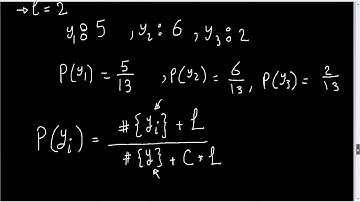 → l = 2
y₁: 5 , y₂: 6 , y₃: 2
P(y₁) = 5/13 , P(y₂) = 6/13 , P(y₃) = 2/13
P(yᵢ) = (#{yᵢ} + l) / (#{y} + C * l)